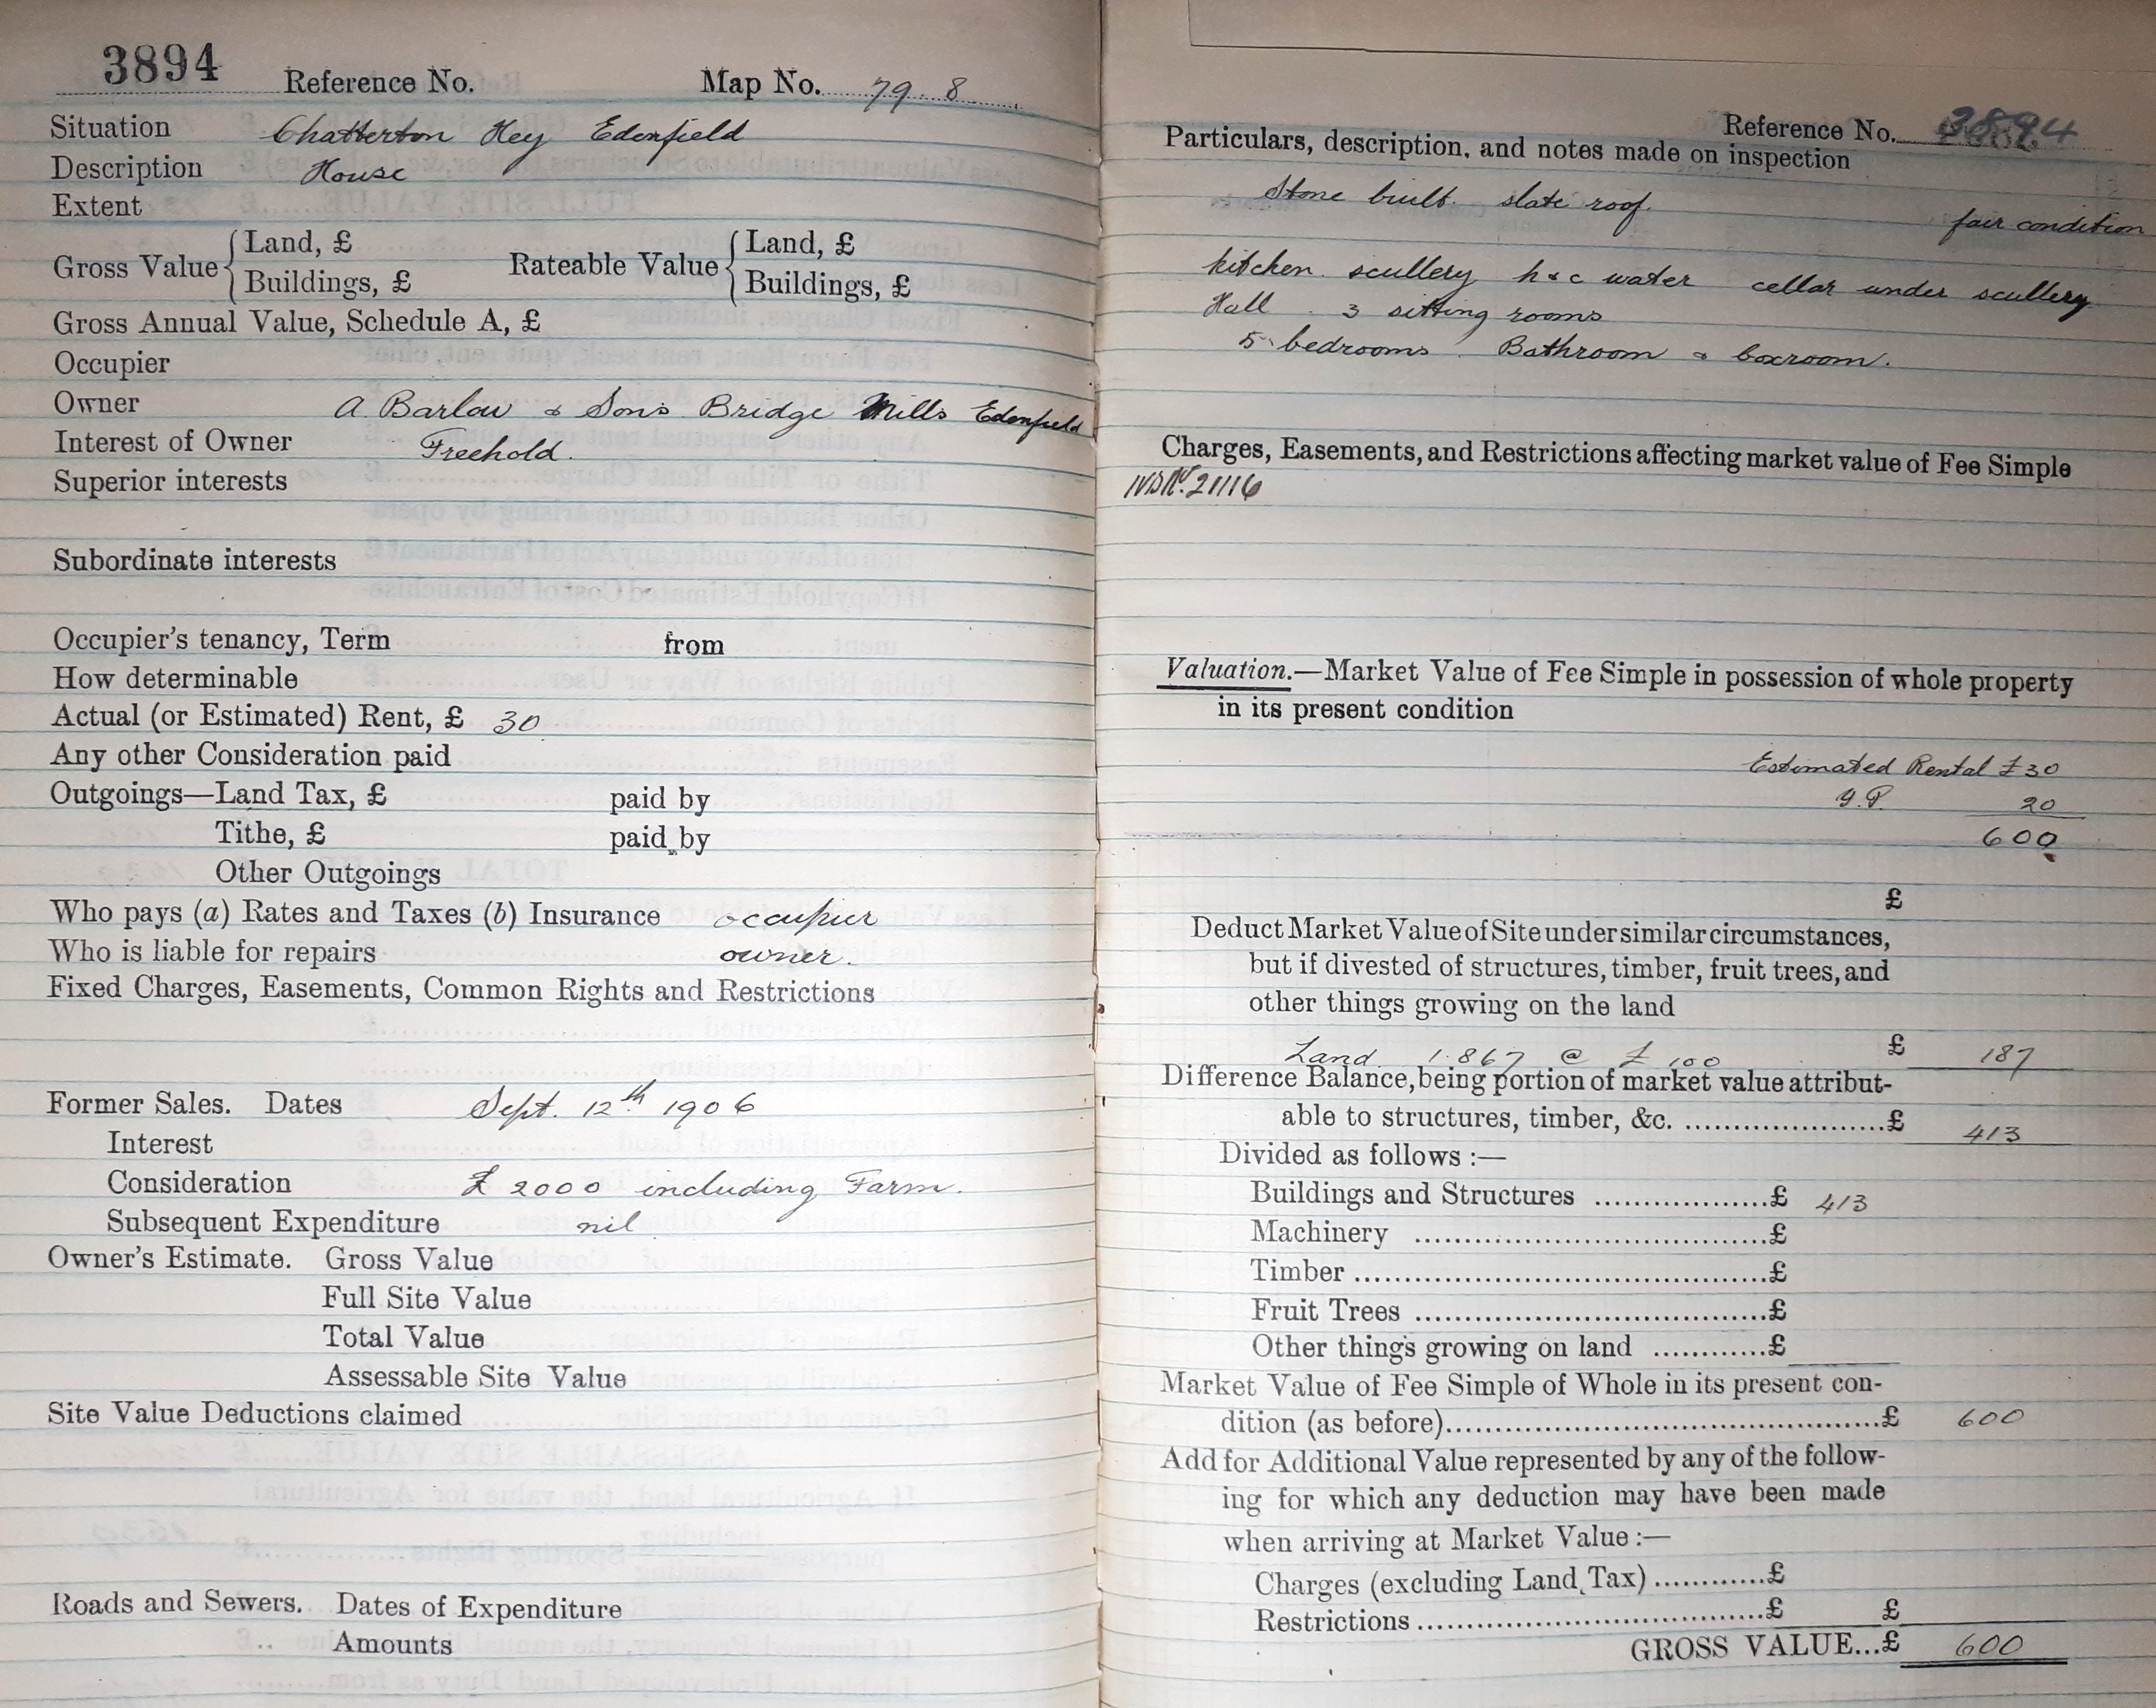 3894 Reference No. Map No. 79. 8
Situation Chatterton Hey Edenfield
Description House
Extent
Gross Value { Land, £ Rateable Value { Land, £
Buildings, £ Buildings, £
Gross Annual Value, Schedule A, £
Occupier
Owner A. Barlow & Sons Bridge Mills Edenfield
Interest of Owner Freehold.
Superior interests
Subordinate interests
Occupier's tenancy, Term from
How determinable
Actual (or Estimated) Rent, £ 30
Any other Consideration paid
Outgoings—Land Tax, £ paid by
Tithe, £ paid by
Other Outgoings
Who pays (a) Rates and Taxes (b) Insurance occupier
Who is liable for repairs owner.
Fixed Charges, Easements, Common Rights and Restrictions
Former Sales. Dates Sept. 12th 1906
Interest
Consideration £2000 including Farm.
Subsequent Expenditure nil
Owner's Estimate. Gross Value
Full Site Value
Total Value
Assessable Site Value
Site Value Deductions claimed
Roads and Sewers. Dates of Expenditure
Amounts
Reference No. 3894
Particulars, description, and notes made on inspection
Stone built. slate roof.
fair condition
kitchen. scullery h & c water cellar under scullery
Hall. 3 sitting rooms
5 bedrooms. Bathroom & boxroom.
Charges, Easements, and Restrictions affecting market value of Fee Simple
21116
Valuation.—Market Value of Fee Simple in possession of whole property
in its present condition
Estimated Rental £30
Y.P. 20
600
£
Deduct Market Value of Site under similar circumstances,
but if divested of structures, timber, fruit trees, and
other things growing on the land
Land 1.867 @ £100 £ 187
Difference Balance, being portion of market value attribut-
able to structures, timber, &c. ......................£ 413
Divided as follows :—
Buildings and Structures .................£ 413
Machinery ...................................£
Timber .........................................£
Fruit Trees ...................................£
Other things growing on land ...........£
Market Value of Fee Simple of Whole in its present con-
dition (as before)...........................................£ 600
Add for Additional Value represented by any of the follow-
ing for which any deduction may have been made
when arriving at Market Value :—
Charges (excluding Land Tax) ...........£
Restrictions ...................................£ £
GROSS VALUE...£ 600